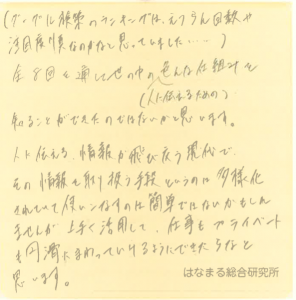 (グーグル検索のランキングは、もちろん回数や
注目度順なのかなと思ってました…)
全8回を通して世の中の色んな仕組みを
(人に伝えるための)
知ることができたのではないかと思います。
人に伝える、情報が飛び交う現代で、
その情報を取り扱う手段というのは多様化
されていて使いこなすのは簡単ではないかもしれ
ませんが上手く活用して、仕事もプライベート
も円滑にまわっていけるようにできたらなと
思います。
はなまる総合研究所